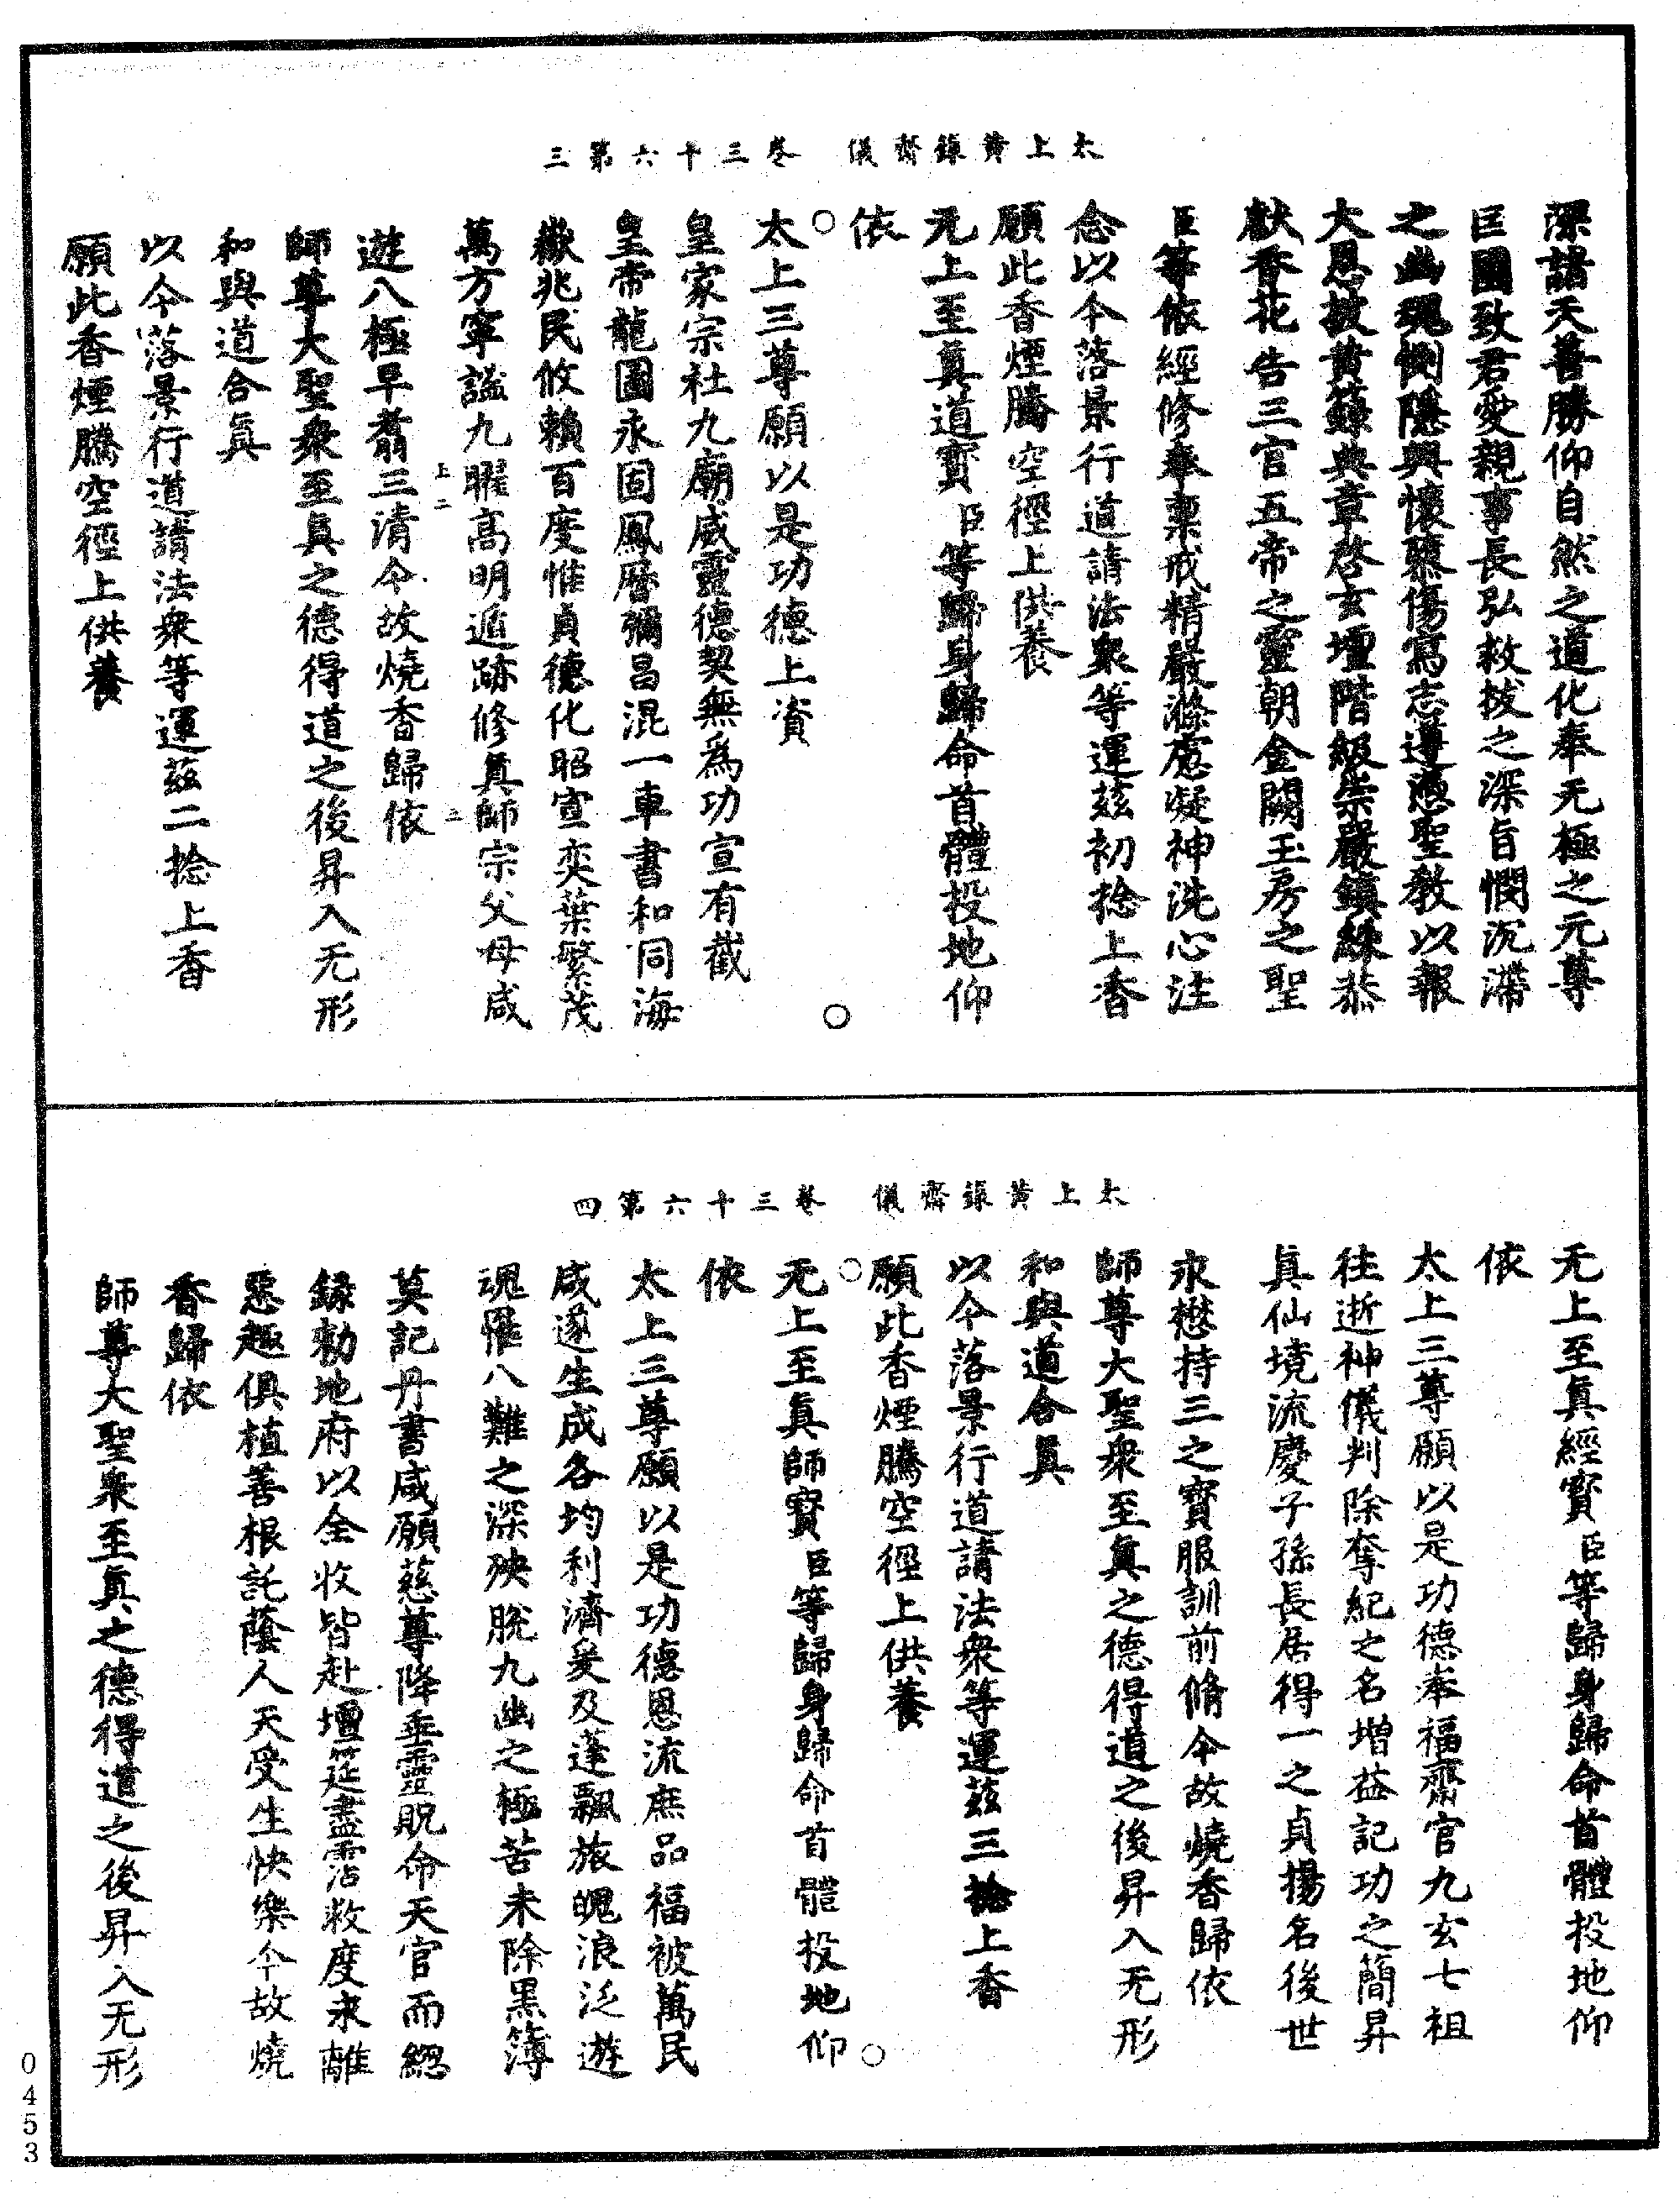 太上黃籙齋儀 卷三十六第三
深諸天善勝仰自然之道化奉无極之元尊
匡國致君愛親事長弘救拔之深旨憫沉滯
之幽魂惻隱興懷慈傷寫志遵憑聖教以報
大恩披黃籙典章啓玄壇階級崇嚴鎮綵恭
獻香花告三官五帝之靈朝金闕玉房之聖
臣等依經修奉稟戒精嚴滌慮凝神洗心注
念以今落景行道請法衆等運茲初捻上香
願此香煙騰空徑上供養
无上至真道寶臣等歸身歸命首體投地仰
依
太上三尊願以是功德上資
皇家宗社九廟威靈德契無爲功宣有截
皇帝龍圖永固鳳曆彌昌混一車書和同海
嶽兆民攸賴百度惟貞德化昭宣奕葉繁茂
萬方寧謐九曜高明遁跡修真師宗父母咸
遊八極早翥三清今故燒香歸依
師尊大聖衆至真之德得道之後昇入无形
和與道合真
以今落景行道請法衆等運茲二捻上香
願此香煙騰空徑上供養
上二
太上黃籙齋儀 卷三十六第四
无上至真經寳臣等歸身歸命首體投地仰
依
太上三尊願以是功德奉福齋官九玄七祖
往逝神儀判除奪紀之名增益記功之簡昇
真仙境流慶子孫長居得一之貞揚名後世
永懋持三之寳服訓前脩今故燒香歸依
師尊大聖衆至真之德得道之後昇入无形
和與道合真
以今落景行道請法衆等運茲三捻上香
願此香煙騰空徑上供養
无上至真師寳臣等歸身歸命首體投地仰
依
太上三尊願以是功德恩流庶品福被萬民
咸遂生成各均利濟爰及蓬飄旅魄浪泛遊
魂罹八難之深殃脫九幽之極苦未除黑簿
莫記丹書咸願慈尊降垂靈貺命天官而總
録勑地府以全收皆赴壇筵盡霑救度永離
惡趣俱植善根託蔭人天受生快樂今故燒
香歸依
師尊大聖衆至真之德得道之後昇入无形
0453